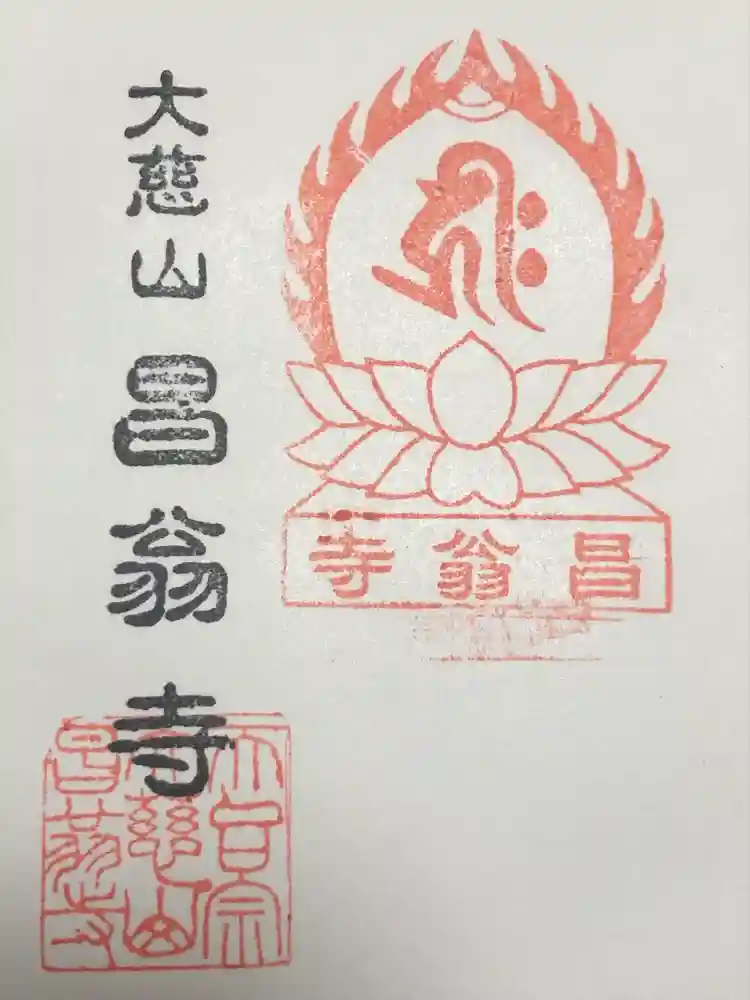 𑖮𑖿𑖨𑖱𑖾
寺翁昌
大慈山 昌翁寺